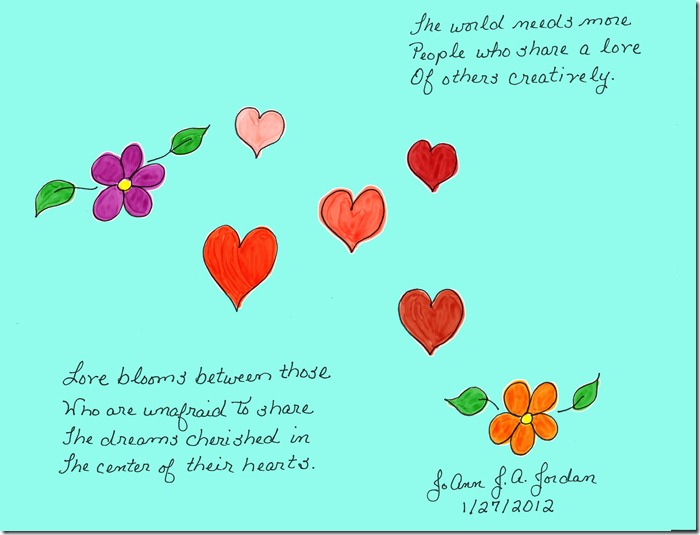 The world needs more
People who share a love
Of others creatively.
Love blooms between those
Who are unafraid to share
The dreams cherished in
The center of their hearts.
JoAnn J.A. Jordan
1/27/2012